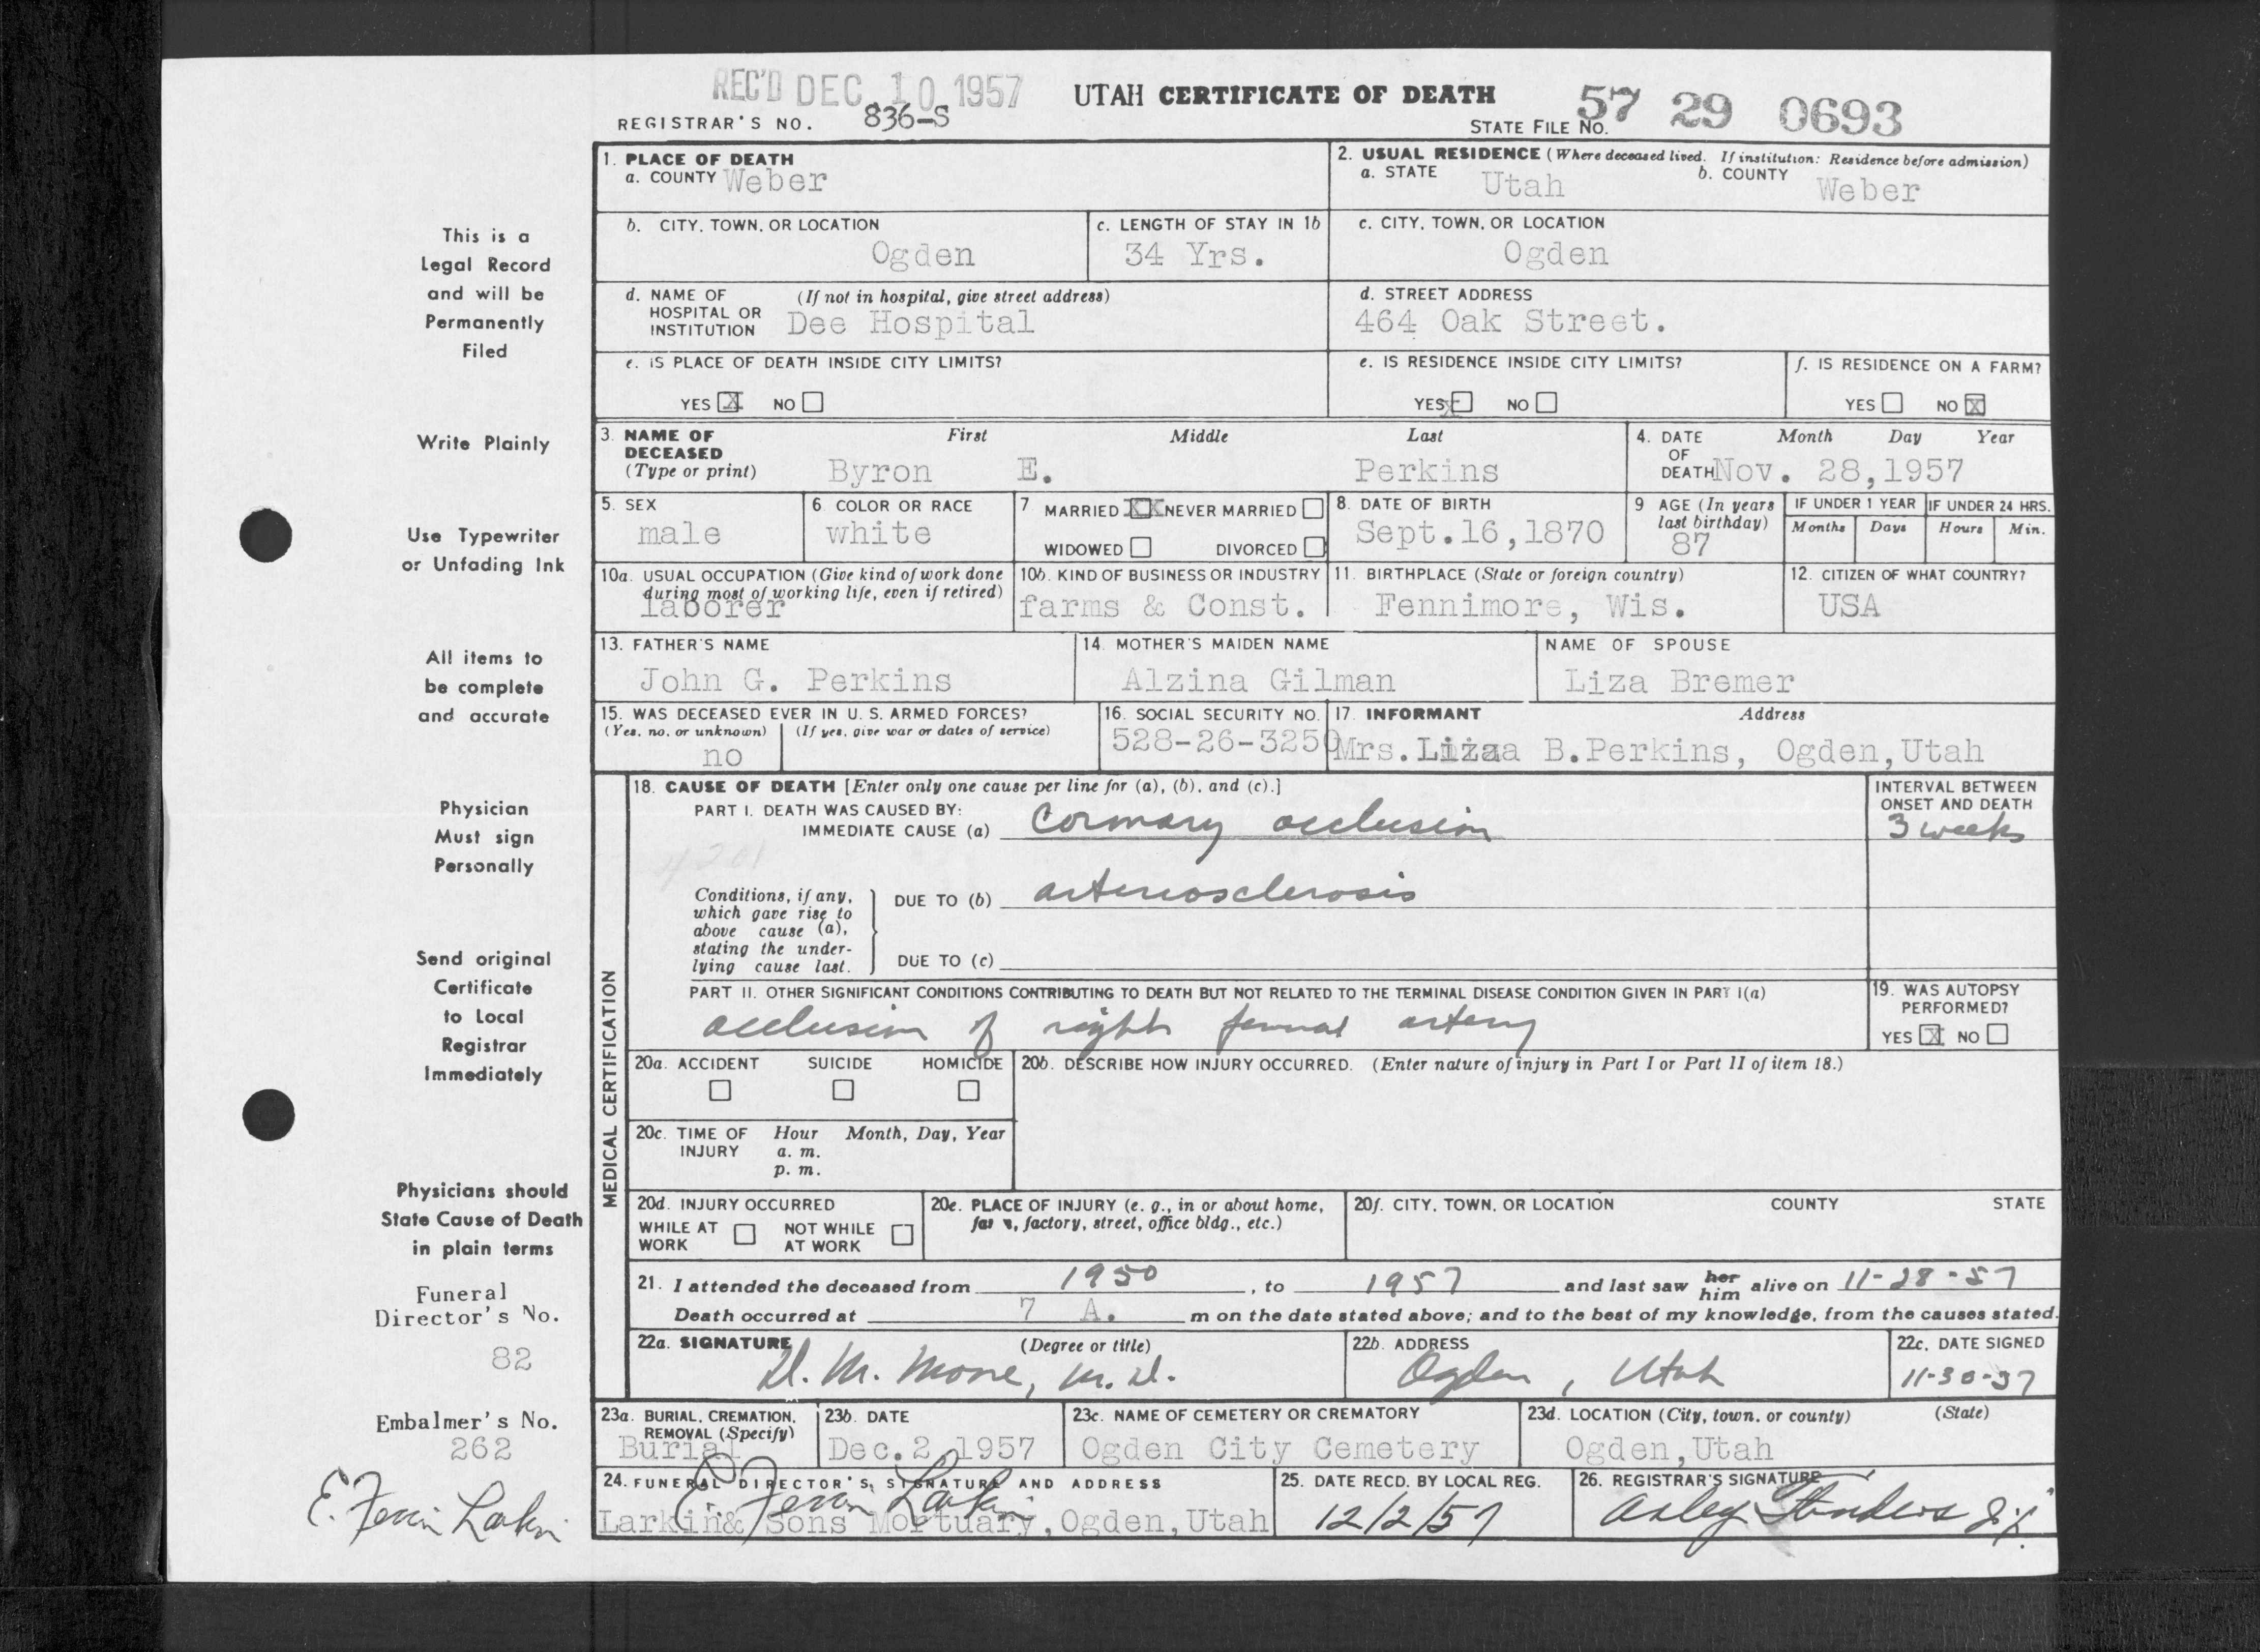 REC'D DEC 10 1957 UTAH CERTIFICATE OF DEATH 57 29 0693
REGISTRAR'S NO. 836-S STATE FILE NO.
1. PLACE OF DEATH
a. COUNTY Weber
2. USUAL RESIDENCE (Where deceased lived. If institution: Residence before admission)
a. STATE Utah b. COUNTY Weber
b. CITY, TOWN, OR LOCATION
Ogden
c. LENGTH OF STAY IN 1b
34 Yrs.
c. CITY, TOWN, OR LOCATION
Ogden
d. NAME OF HOSPITAL OR INSTITUTION (If not in hospital, give street address)
Dee Hospital
d. STREET ADDRESS
464 Oak Street.
e. IS PLACE OF DEATH INSIDE CITY LIMITS?
YES X NO
e. IS RESIDENCE INSIDE CITY LIMITS?
YES X NO
f. IS RESIDENCE ON A FARM?
YES NO X
3. NAME OF DECEASED (Type or print) First Middle Last
Byron E. Perkins
4. DATE OF DEATH Month Day Year
Nov. 28,1957
5. SEX
male
6. COLOR OR RACE
white
7. MARRIED XX NEVER MARRIED
WIDOWED DIVORCED
8. DATE OF BIRTH
Sept.16,1870
9 AGE (In years last birthday)
87
IF UNDER 1 YEAR IF UNDER 24 HRS.
Months Days Hours Min.
10a. USUAL OCCUPATION (Give kind of work done during most of working life, even if retired)
laborer
10b. KIND OF BUSINESS OR INDUSTRY
farms & Const.
11. BIRTHPLACE (State or foreign country)
Fennimore, Wis.
12. CITIZEN OF WHAT COUNTRY?
USA
13. FATHER'S NAME
John G. Perkins
14. MOTHER'S MAIDEN NAME
Alzina Gilman
NAME OF SPOUSE
Liza Bremer
15. WAS DECEASED EVER IN U. S. ARMED FORCES?
(Yes, no, or unknown) (If yes, give war or dates of service)
no
16. SOCIAL SECURITY NO.
528-26-3250
17. INFORMANT Address
Mrs. B.Perkins, Ogden,Utah
MEDICAL CERTIFICATION
18. CAUSE OF DEATH [Enter only one cause per line for (a), (b), and (c).]
PART I. DEATH WAS CAUSED BY:
IMMEDIATE CAUSE (a) Coronary occlusion
INTERVAL BETWEEN ONSET AND DEATH
3 weeks
4201
Conditions, if any, which gave rise to above cause (a), stating the underlying cause last.
DUE TO (b) arteriosclerosis
DUE TO (c)
PART II. OTHER SIGNIFICANT CONDITIONS CONTRIBUTING TO DEATH BUT NOT RELATED TO THE TERMINAL DISEASE CONDITION GIVEN IN PART I(a)
occlusion of right femoral artery
19. WAS AUTOPSY PERFORMED?
YES X NO
20a. ACCIDENT SUICIDE HOMICIDE
20b. DESCRIBE HOW INJURY OCCURRED. (Enter nature of injury in Part I or Part II of item 18.)
20c. TIME OF INJURY Hour Month, Day, Year
a. m.
p. m.
20d. INJURY OCCURRED
WHILE AT WORK NOT WHILE AT WORK
20e. PLACE OF INJURY (e. g., in or about home, farm, factory, street, office bldg., etc.)
20f. CITY, TOWN, OR LOCATION COUNTY STATE
21. I attended the deceased from 1950, to 1957 and last saw her him alive on 11-28-57
Death occurred at 7 A. m on the date stated above; and to the best of my knowledge, from the causes stated.
22a. SIGNATURE (Degree or title)
D. M. Moore, M.D.
22b. ADDRESS
Ogden, Utah
22c. DATE SIGNED
11-30-57
23a. BURIAL, CREMATION, REMOVAL (Specify)
Burial
23b. DATE
Dec.2,1957
23c. NAME OF CEMETERY OR CREMATORY
Ogden City Cemetery
23d. LOCATION (City, town, or county) (State)
Ogden,Utah
24. FUNERAL DIRECTOR'S SIGNATURE AND ADDRESS
E. Larkin
Larkin& Sons Mortuary,Ogden,Utah
25. DATE RECD. BY LOCAL REG.
12/2/57
26. REGISTRAR'S SIGNATURE
This is a
Legal Record
and will be
Permanently
Filed
Write Plainly
Use Typewriter
or Unfading Ink
All items to
be complete
and accurate
Physician
Must sign
Personally
Send original
Certificate
to Local
Registrar
Immediately
Physicians should
State Cause of Death
in plain terms
Funeral
Director's No.
82
Embalmer's No.
262
E. Larkin